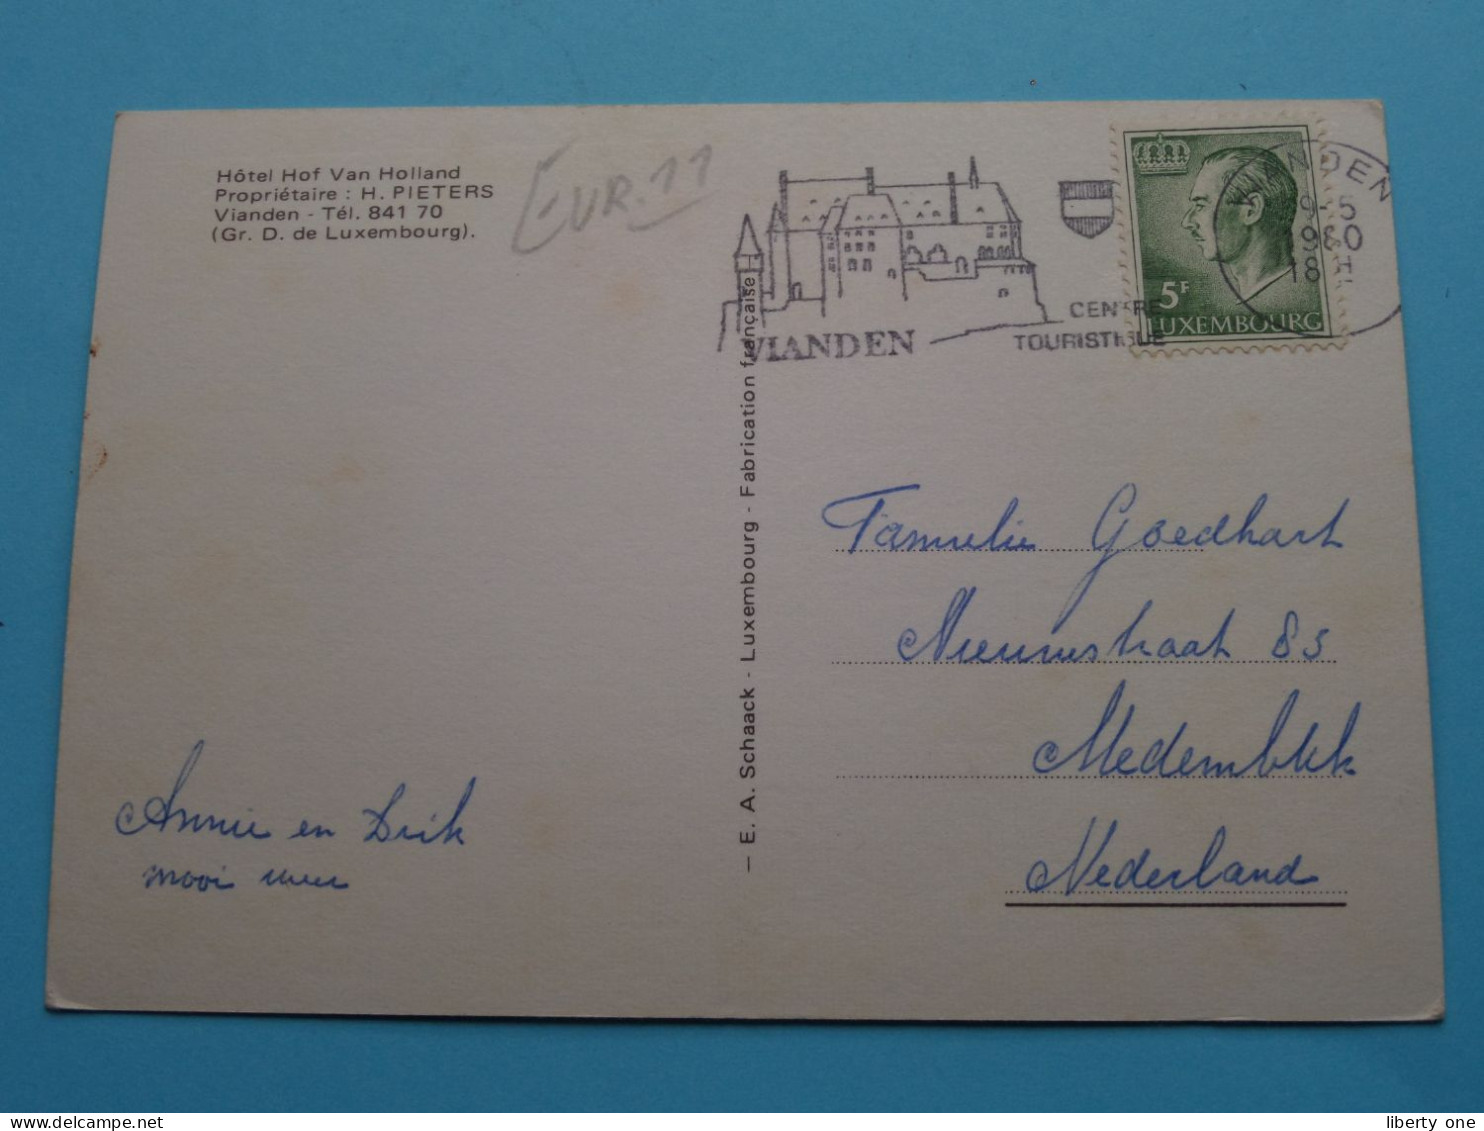 Hôtel Hof Van Holland
Propriétaire : H. PIETERS
Vianden - Tél. 841 70
(Gr. D. de Luxembourg).
EUR. 11
VIANDEN
CENTRE
TOURISTIQUE
VIANDEN
5F
LUXEMBOURG
— E. A. Schaack - Luxembourg - Fabrication française
Famielie Goedhart
Nieuwstraat 85
Medemblik
Nederland
Annie en Dirk
mooi weer
liberty one